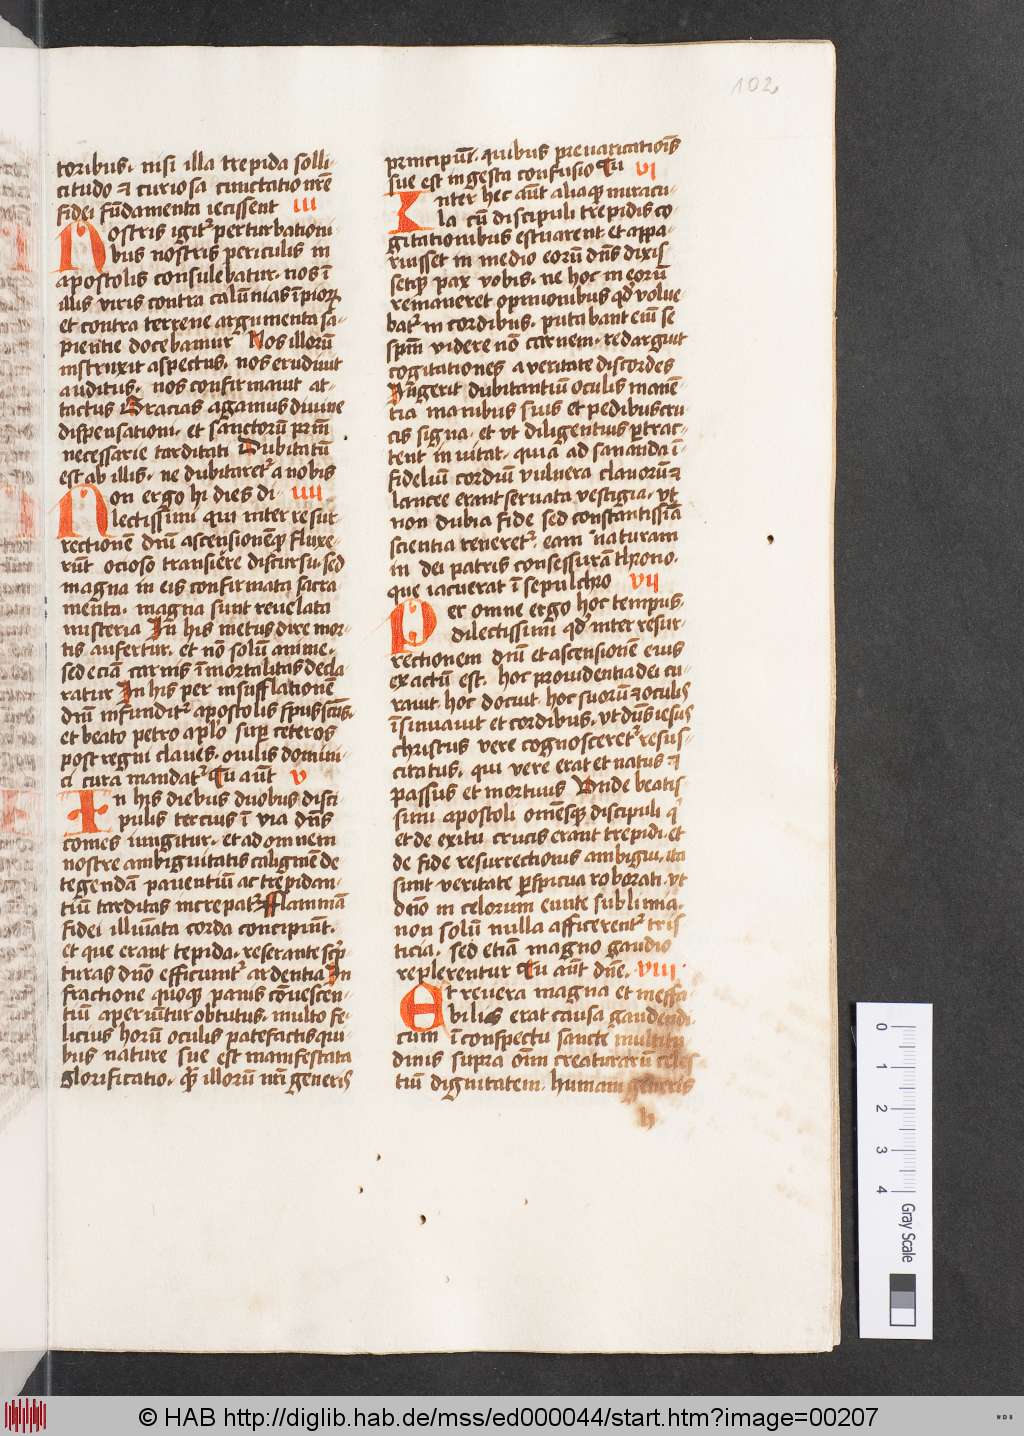 102
toribus· nisi illa trepida solli-
citudo ⁊ curiosa cunctatio nr̄e
fidei fūdamenta iecissent iii
Nostris igit᷑ perturbationi-
bus nostris periculis in
apostolis consulebatur· nos ī
illis viris contra calūnias īpioꝝ
et contra terrene argumenta sa-
pientie docebamur Nos illorū
instruxit aspectus· nos erudiuit
auditus· nos confirmauit at-
tactus Gracias agamus diuine
dispensationi· et sanctorū prm̄
necessarie tarditati Dubitatū
est ab illis· ne dubitaret᷑ a nobis
Non ergo hi dies di- iiii
lectissimi qui inter resur-
rectionē dn̄i ascensionēqꝫ fluxe-
rūt ocioso transiere discursu· sed
magna in eis confirmata sacra
menta· magna sunt reuelata
misteria In his metus dire mor-
tis aufertur· et nō solū anime·
sed eciā carnis īmortalitas decla
ratur In his per insufflationē
dn̄i infundit᷑ apostolis sp̄us scūs·
et beato petro ap̄lo sup̄ ceteros
post regni claues· ouilis domini-
ci cura mandat᷑ Tu aūt v
In his diebus duobus disci-
pulis tercius ī via dn̄s
comes iungitur· et ad omnem
nostre ambiguitatis caliginē de
tegendā pauentiū ac trepidan-
tiū tarditas increpat᷑ Flammā
fidei illuīata corda concipiūt·
et que erant tepida· reserante sc̄p
turas dn̄o efficiunt᷑ ardentia In
fractione quoqꝫ panis cōuescen-
tiū aperiūtur obtutus· multo fe-
licius horū oculis patefactis qui-
bus nature sue est manifestata
glorificatio· q̄ illorū nr̄i generis
principū· quibus preuaricatiōis
sue est ingesta confusio Tu vi
Inter hec aūt aliaqꝫ miracu-
la cū discipuli trepidis co-
gitationibus estuarent et appa-
ruisset in medio eorū dn̄s dixis
setqꝫ pax vobis· ne hoc in eorū
remaneret opinionibus qd̄ volue
bat᷑ in cordibus· putabant eiū se
spm̄ videre nō carnem· redarguit
cogitationes a veritate discordes
Ingerit dubitantiū oculis manē-
tia manibus suis et pedibus cru
cis signa· et vt diligentius ꝑtrac-
tent inuitat· quia ad sananda ī-
fideliū cordiū vulnera clauorū ⁊
lancee erant seruata vestigia· vt
non dubia fide sed constantissīa
scientia teneret᷑ eam naturam
in dei patris consessurā throno·
que iacuerat ī sepulchro vii
Per omne ergo hoc tempus·
dilectissimi qd̄ inter resur-
rectionem dn̄i et ascensionē eius
exactū est· hoc prouidentia dei cu-
rauit· hoc docuit· hoc suorū ⁊ oculis
īsinuauit et cordibus· vt dn̄s iesus
christus vere cognosceret᷑ resus-
citatus· qui vere erat et natus ⁊
passus et mortuus Unde beatis
simi apostoli omēsqꝫ discipuli q̇
et de exitu crucis erant trepidi· et
de fide resurrectionis ambigui· ita
sunt veritate ꝑspicua roborati· vt
dn̄o in celorum eunte sublimia·
non solū nulla afficerent᷑ tris
ticia· sed etiā magno gaudio
replerentur Tu aūt dn̄e· viii·
Et reuera magna et ineffa-
bilis erat causa gaudendi
cum ī conspectu sancte multitu
dinis supra oīm creaturarū celes
tiū dignitatem· humani generis
h
0 1 2 3 4 Gray Scale
© HAB http://diglib.hab.de/mss/ed000044/start.htm?image=00207